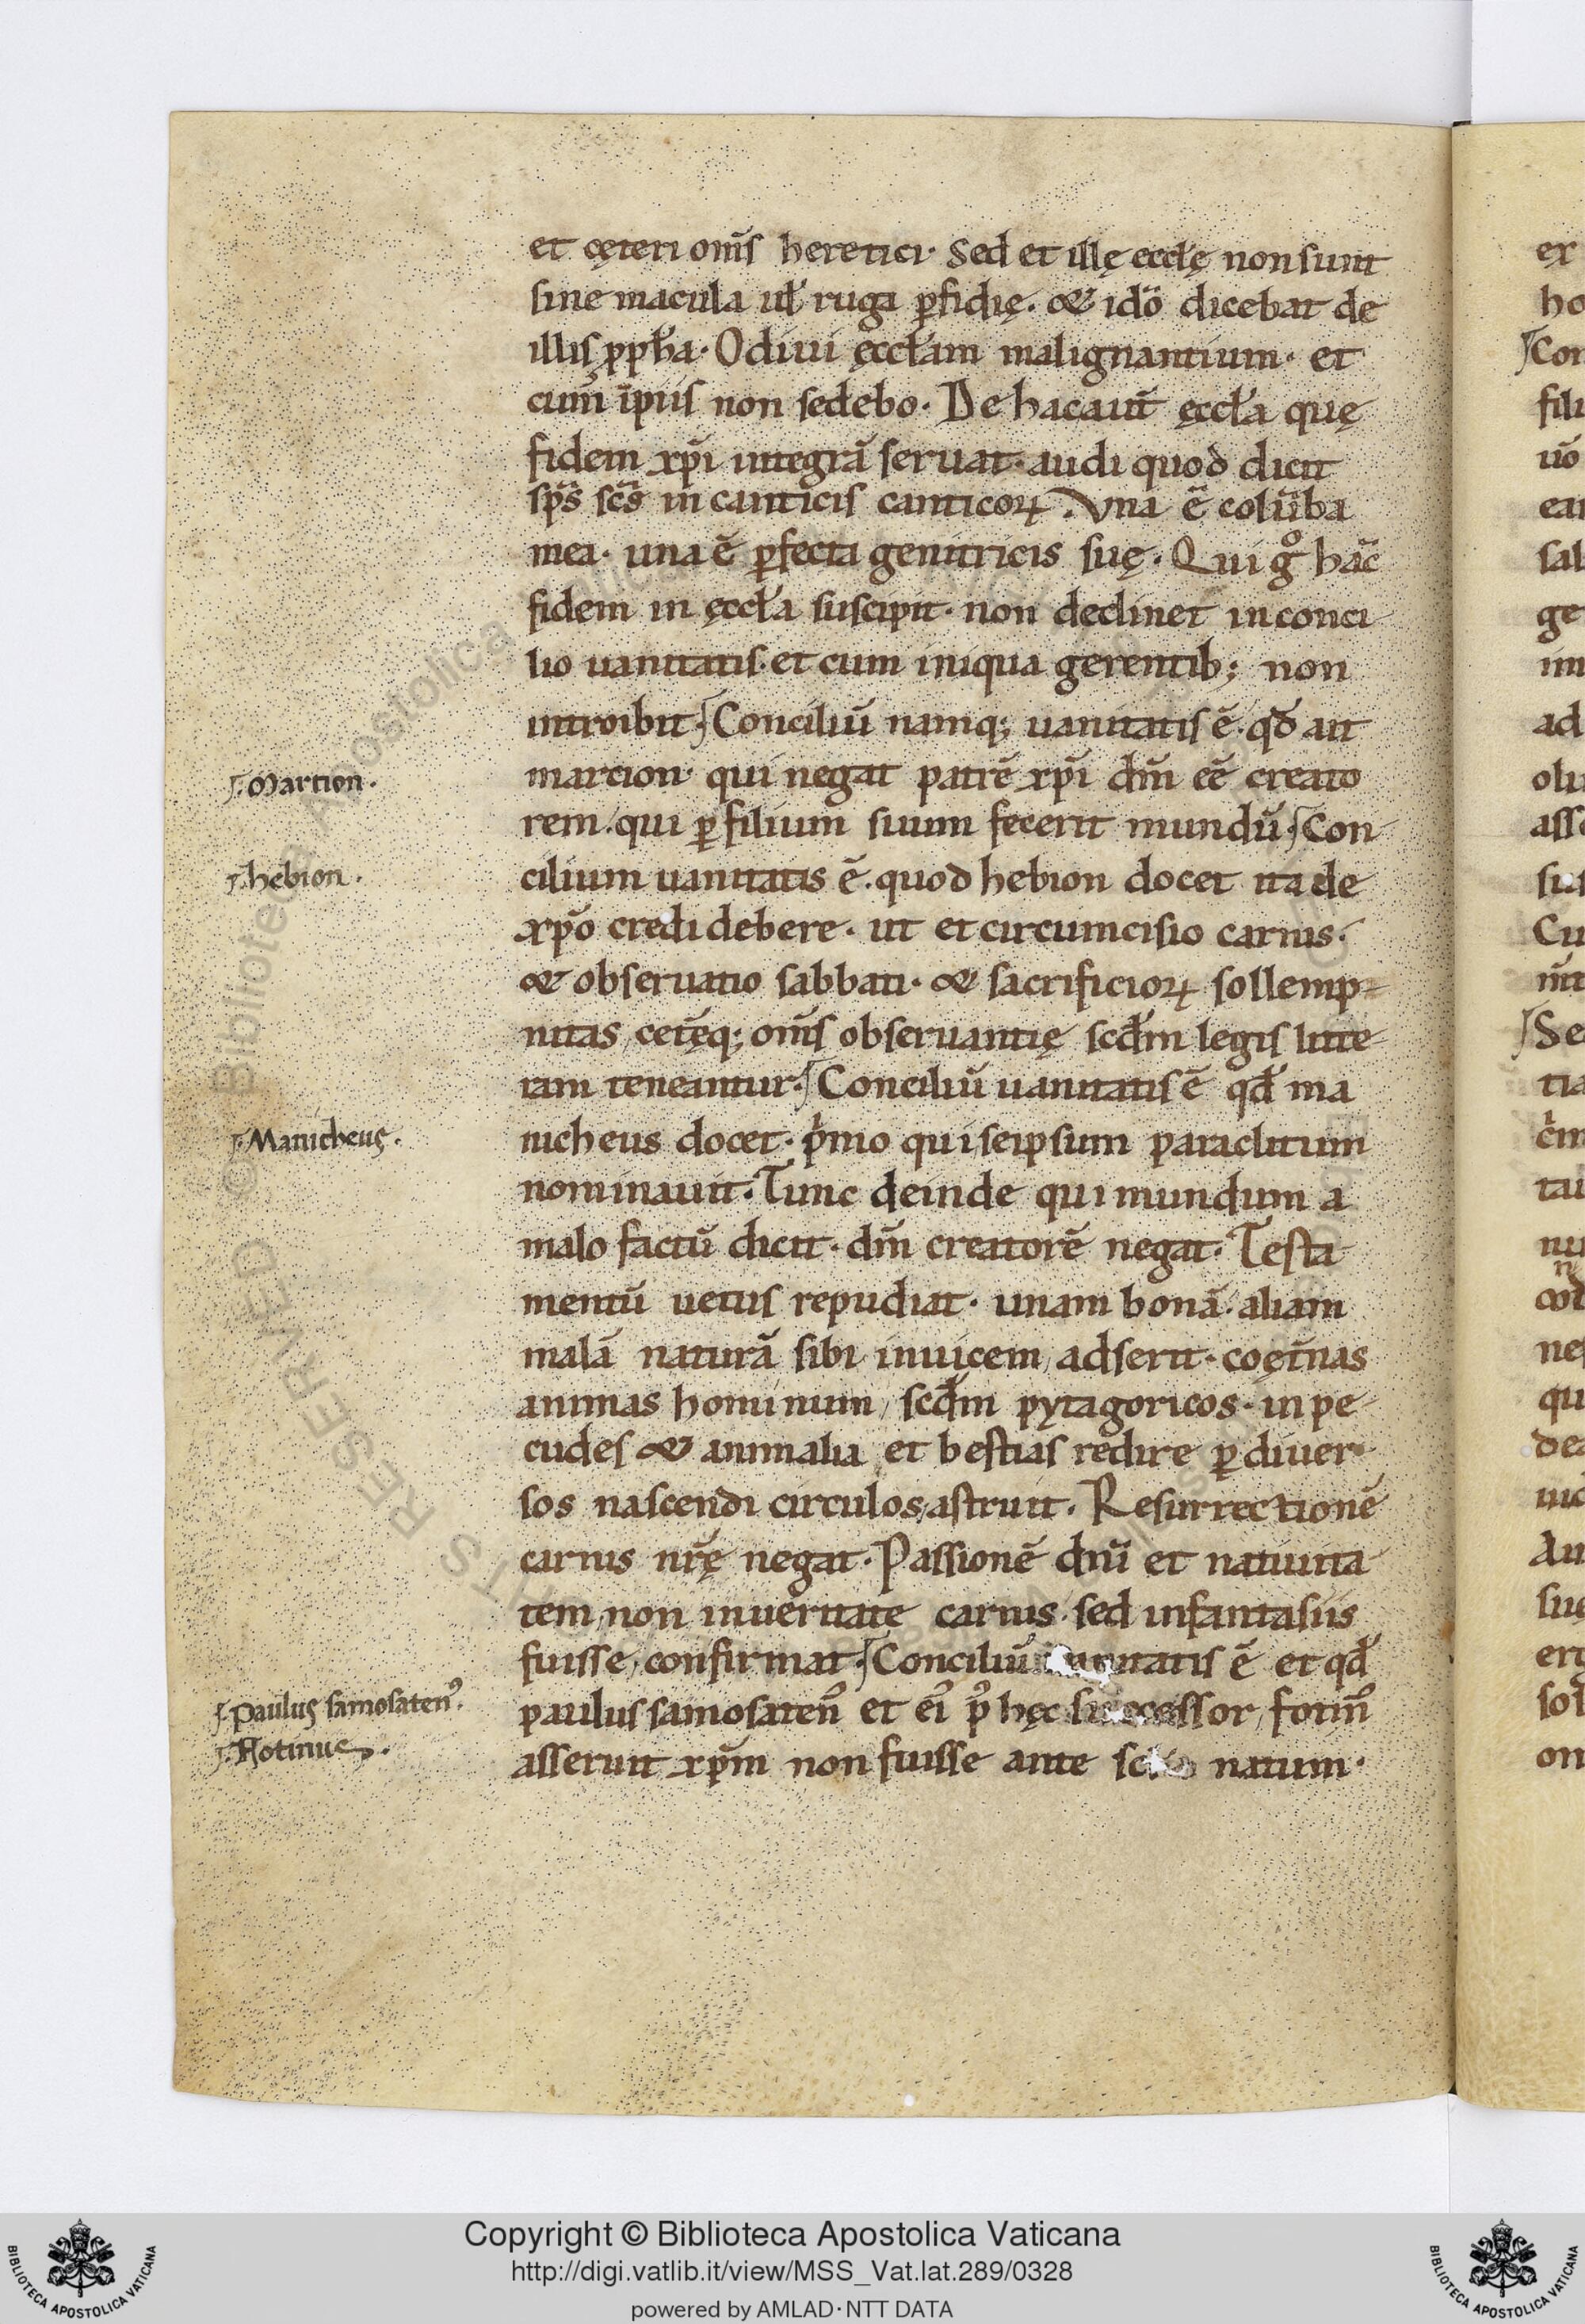 et cęteri om̄s heretici· Sed et illę eccłę non sunt
sine macula ul̄ ruga ꝑfidię. & idō dicebat de
illis ꝓpħa· Odiui ęccłam malignantium· et
cum īpiis non sedebo· De hac aut̄ ęccła quę
fidem xp̄i integrā seruat· audi quod dicit
sp̄s sc̄s in canticis canticoꝝ. Vna ē colūba
mea· una ē ꝑfecta genitricis suę. Qui gͦ hāc
fidem in ęccła suscipit· non declinet in conci
lio uanitatis· et cum iniqua gerentib; non
introibit· Conciliū namq; uanitatis ē· qđ ait
marcion· qui negat patrē xp̄i dm̄ eē creato
rem· qui ꝑ filium suum fecerit mundū· Con
cilium uanitatis ē. quod hebion docet ita de
xp̄o credi debere· ut et circumcisio carnis·
& obseruatio sabbati· & sacrificioꝝ sollemp
nitas, cet̄ęq; om̄s obseruantię scđm legis litte
ram teneantur· Conciliū uanitatis ē qđ ma
nicheus docet· pͥmo qui seipsum paraclitum
nominauit. Tunc deinde qui mundum a
malo factū dicit· dm̄ creatorē negat· Testa
mentū uetus repudiat· unam bonā· aliam
malā naturā sibi inuicem, adserit· coęt̄nas
animas hominum, scđm pytagoricos· in pe
cudes & animalia et bestias redire ꝑ diuer
sos nascendi circulos, astruit. Resurrectionē
carnis nr̄ę negat· Passionē dn̄i et natiuita
tem, non in ueritate carnis· sed in fantasiis
fuisse, confirmat· Conciliū uanitatis ē et qđ
paulus samosaten᷒ et ei᷒ p᷒ hęc successor, fotin᷒
asserunt xp̄m non fuisse ante natum·
Martion·
hebion·
Manicheus·
Paulus samosaten᷒·
Fotinus·
Copyright © Biblioteca Apostolica Vaticana
http://digi.vatlib.it/view/MSS_Vat.lat.289/0328
powered by AMLAD·NTT DATA